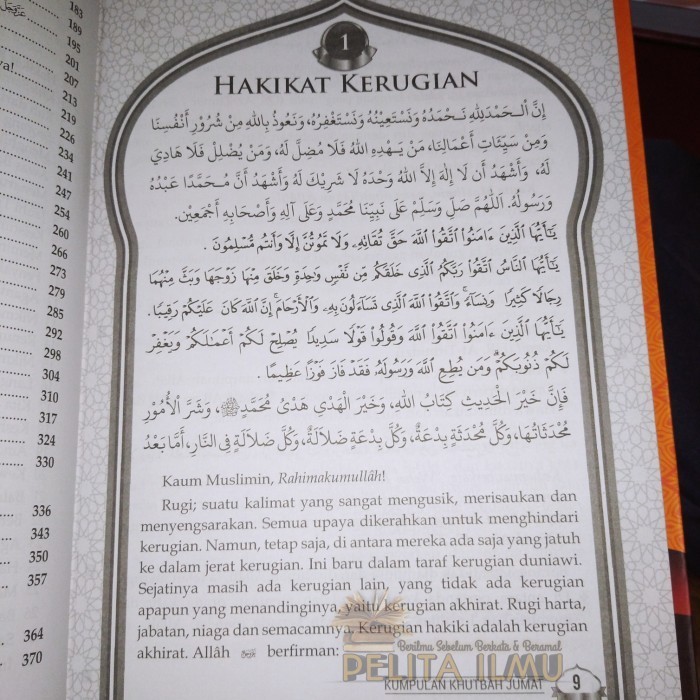 183
189
195
201
ya!
207
213
219
226
234
241
247
254
260
266
273
279
285
292
298
304
310
317
324
330
336
343
350
357
364
370
1
HAKIKAT KERUGIAN
إِنَّ الْحَمْدَ لِلّٰهِ نَحْمَدُهُ وَنَسْتَعِيْنُهُ وَنَسْتَغْفِرُهُ، وَنَعُوذُ بِاللهِ مِنْ شُرُوْرِ أَنْفُسِنَا
وَمِنْ سَيِّئَاتِ أَعْمَالِنَا، مَنْ يَهْدِهِ اللهُ فَلَا مُضِلَّ لَهُ، وَمَنْ يُضْلِلْ فَلَا هَادِيَ
لَهُ، وَأَشْهَدُ أَن لَا إِلٰهَ إِلَّا اللهُ وَحْدَهُ لَا شَرِيْكَ لَهُ وَأَشْهَدُ أَنَّ مُحَمَّدًا عَبْدُهُ
وَرَسُولُهُ. اَللّٰهُمَّ صَلِّ وَسَلِّمْ عَلَى نَبِيِّنَا مُحَمَّدٍ وَعَلَى آلِهِ وَأَصْحَابِهِ أَجْمَعِيْنَ.
يَٰٓأَيُّهَا ٱلَّذِينَ ءَامَنُوا۟ ٱتَّقُوا۟ ٱللَّهَ حَقَّ تُقَاتِهِۦ وَلَا تَمُوتُنَّ إِلَّا وَأَنتُم مُّسْلِمُونَ .
يَٰٓأَيُّهَا ٱلنَّاسُ ٱتَّقُوا۟ رَبَّكُمُ ٱلَّذِى خَلَقَكُم مِّن نَّفْسٍ وَٰحِدَةٍ وَخَلَقَ مِنْهَا زَوْجَهَا وَبَثَّ مِنْهُمَا
رِجَالًا كَثِيرًا وَنِسَآءً ۚ وَٱتَّقُوا۟ ٱللَّهَ ٱلَّذِى تَسَآءَلُونَ بِهِۦ وَٱلْأَرْحَامَ ۚ إِنَّ ٱللَّهَ كَانَ عَلَيْكُمْ رَقِيبًا .
يَٰٓأَيُّهَا ٱلَّذِينَ ءَامَنُوا۟ ٱتَّقُوا۟ ٱللَّهَ وَقُولُوا۟ قَوْلًا سَدِيدًا يُصْلِحْ لَكُمْ أَعْمَٰلَكُمْ وَيَغْفِرْ
لَكُمْ ذُنُوبَكُمْ ۗ وَمَن يُطِعِ ٱللَّهَ وَرَسُولَهُۥ فَقَدْ فَازَ فَوْزًا عَظِيمًا .
فَإِنَّ خَيْرَ الْحَدِيْثِ كِتَابُ اللهِ، وَخَيْرَ الْهَدْيِ هَدْيُ مُحَمَّدٍ ﷺ، وَشَرَّ الْأُمُوْرِ
مُحْدَثَاتُهَا، وَكُلَّ مُحْدَثَةٍ بِدْعَةٌ، وَكُلَّ بِدْعَةٍ ضَلَالَةٌ، وَكُلَّ ضَلَالَةٍ فِي النَّارِ، أَمَّا بَعْدُ
Kaum Muslimin, Rahimakumullâh!
Rugi; suatu kalimat yang sangat mengusik, merisaukan dan
menyengsarakan. Semua upaya dikerahkan untuk menghindari
kerugian. Namun, tetap saja, di antara mereka ada saja yang jatuh
ke dalam jerat kerugian. Ini baru dalam taraf kerugian duniawi.
Sejatinya masih ada kerugian lain, yang tidak ada kerugian
apapun yang menandinginya, yaitu kerugian akhirat. Rugi harta,
jabatan, niaga dan semacamnya. Kerugian hakiki adalah kerugian
akhirat. Allâh berfirman:
Berilmu Sebelum Berkata & Beramal
PELITA ILMU
KUMPULAN KHUTBAH JUMAT 9